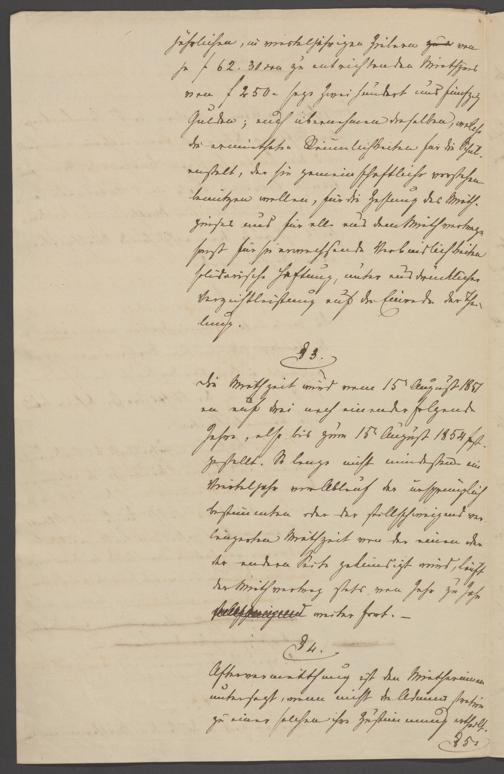 jährlichen, in vierteljährigen Zielern von
je f 62. 30 xrn zu entrichtenden Miethzins
von f 250 – sage zwei hundert und fünfzig
Gulden; auch übernehmen dieselben, welche
die ermietheten Räumlichkeiten für die
anstalt, der sie gemeinschaftlich vorstehen
benützen wollen, für die Zahlung des Mieth-
zinses und für alle aus dem Miethvertrage
sonst für sie erwachsende Verbindlichkeiten
solidarische Haftung, unter ausdrücklicher
Verzichtleistung auf die Einrede der Thei-
lung.
§ 3.
Die Miethzeit wird vom 15n August 1851
an auf drei nach einander folgende
Jahre, also bis zum 15n August 1854 fest-
gestellt. So lange nicht mindestens ein
Vierteljahr vor Ablauf der ursprünglich
bestimmten oder der stillschweigend ver-
längerten Miethzeit von der einen oder
der andern Seite gekündigt wird, läuft
der Miethvertrag stets von Jahr zu Jahr
stillschweigend weiter fort. –
§ 4.
Aftervermiethung ist den Mietherinnen
untersagt, wenn nicht die Administration
zu einer solchen ihre Zustimmung ertheilt.
§ 5.